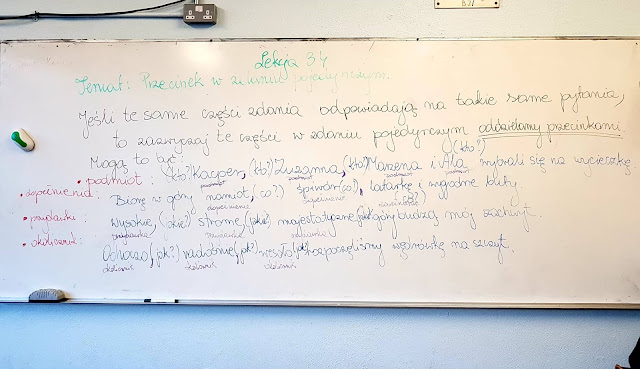 Lekcja 34
Temat: Przecinek w zdaniu pojedynczym.
Jeśli te same części zdania odpowiadają na takie same pytania,
to zazwyczaj te części w zdaniu pojedynczym oddzielamy przecinkami.
Mogą to być:
• podmiot: (kto?) Kacper, (kto?) Zuzanna, (kto?) Marzena i (kto?) Ala wybrali się na wycieczkę
podmiot podmiot podmiot podmiot
• dopełnienia: Biorę w góry namiot, (co?) śpiwór, (co?) latarkę i (co?) wygodne buty.
dopełnienie dopełnienie
• przydawki: Wysokie, (jakie?) strome, (jakie?) majestatyczne góry budzą mój zachwyt.
przydawka przydawka przydawka
• okoliczniki: Ochoczo, (jak?) radośnie, (jak?) wesoło rozpoczęliśmy wędrówkę na szczyt.
okolicznik okolicznik okolicznik